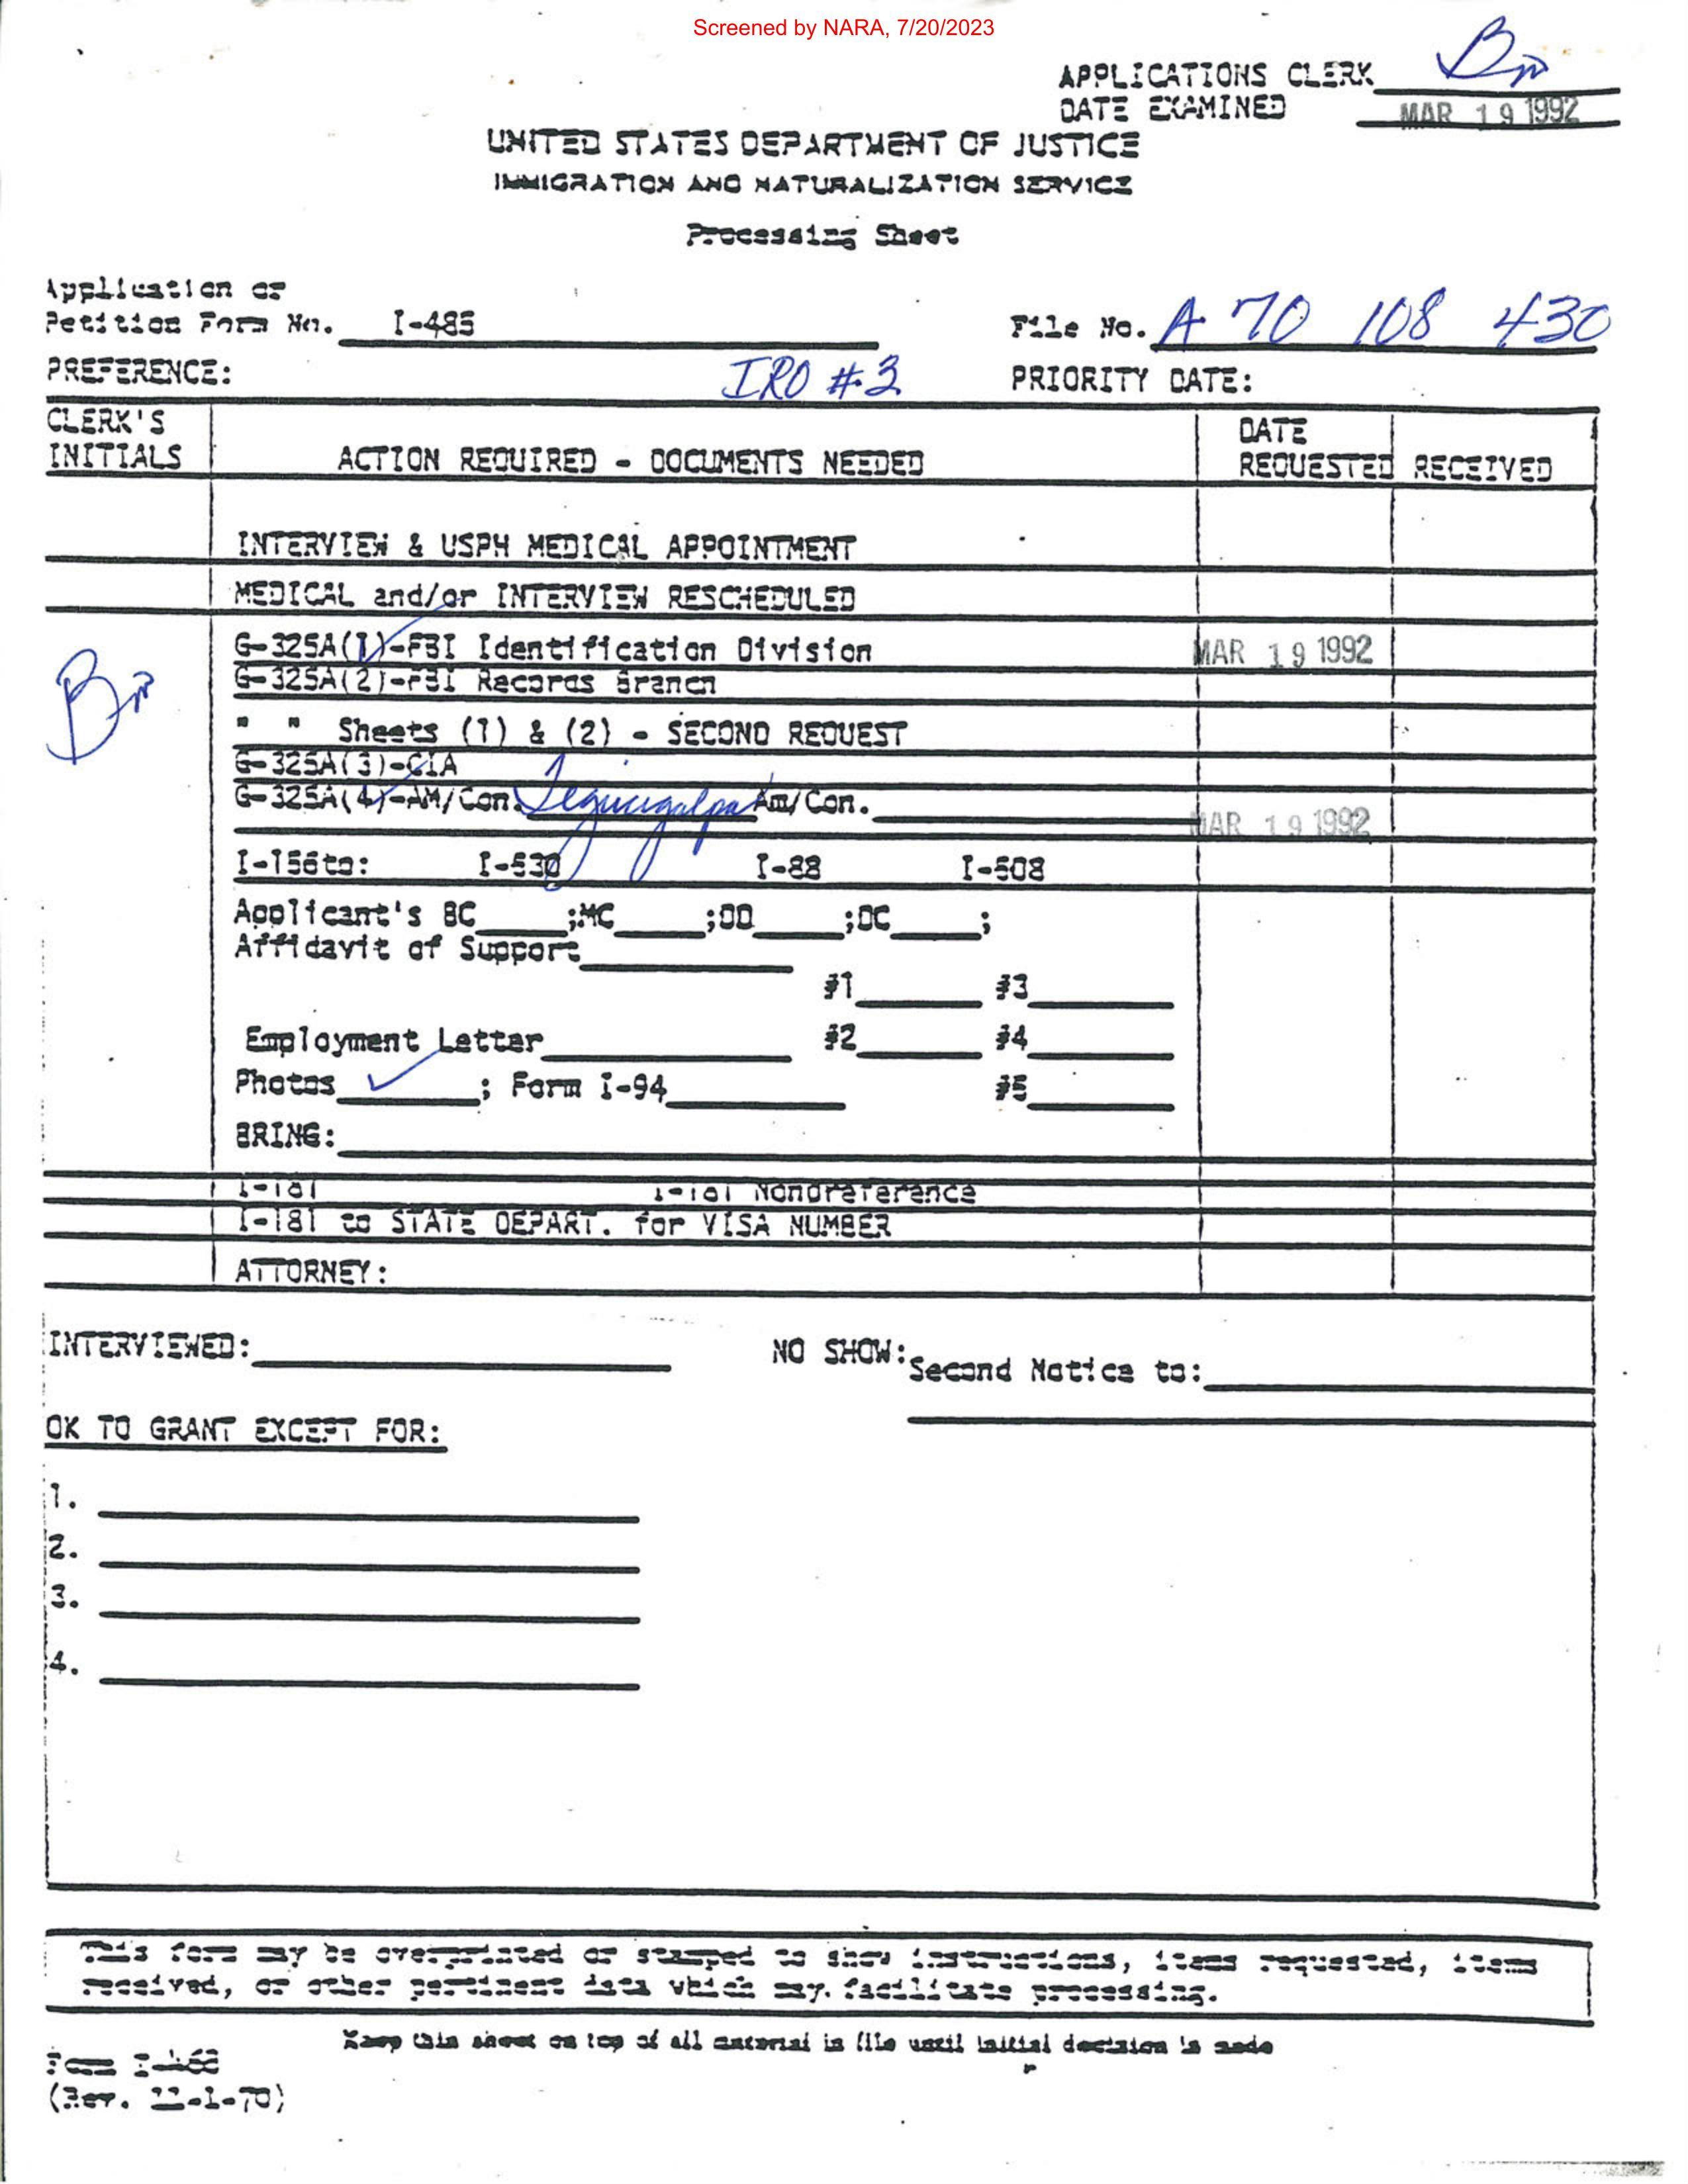 Screened by NARA, 7/20/2023
APPLICATIONS CLERK
DATE EXAMINED MAR 19 1992
UNITED STATES DEPARTMENT OF JUSTICE
IMMIGRATION AND NATURALIZATION SERVICE
Processing Sheet
Application or
Petition Form No. I-485 File No. A 70 108 430
PREFERENCE: IRO #3 PRIORITY DATE:
CLERK'S
INITIALS ACTION REQUIRED - DOCUMENTS NEEDED DATE
REQUESTED RECEIVED
INTERVIEW & USPH MEDICAL APPOINTMENT
MEDICAL and/or INTERVIEW RESCHEDULED
G-325A(1)-FBI Identification Division MAR 19 1992
G-325A(2)-FBI Records Branch
" " Sheets (1) & (2) - SECOND REQUEST
G-325A(3)-CIA
G-325A(4)-AM/Con. Tegucigalpa Am/Con. MAR 19 1992
I-156to: I-530 I-88 I-508
Applicant's BC ;MC ;DD ;DC ;
Affidavit of Support
#1 #3
Employment Letter #2 #4
Photos ✓ ; Form I-94 #5
BRING:
I-181 I-181 Nonpreference
I-181 to STATE DEPART. for VISA NUMBER
ATTORNEY:
INTERVIEWED: NO SHOW: Second Notice to:
OK TO GRANT EXCEPT FOR:
1.
2.
3.
4.
This form may be overprinted or stamped to show instructions, items requested, items
received, or other pertinent data which may. facilitate processing.
Keep this sheet on top of all material in file until initial decision is made
Form I-468
(Rev. 11-1-70)